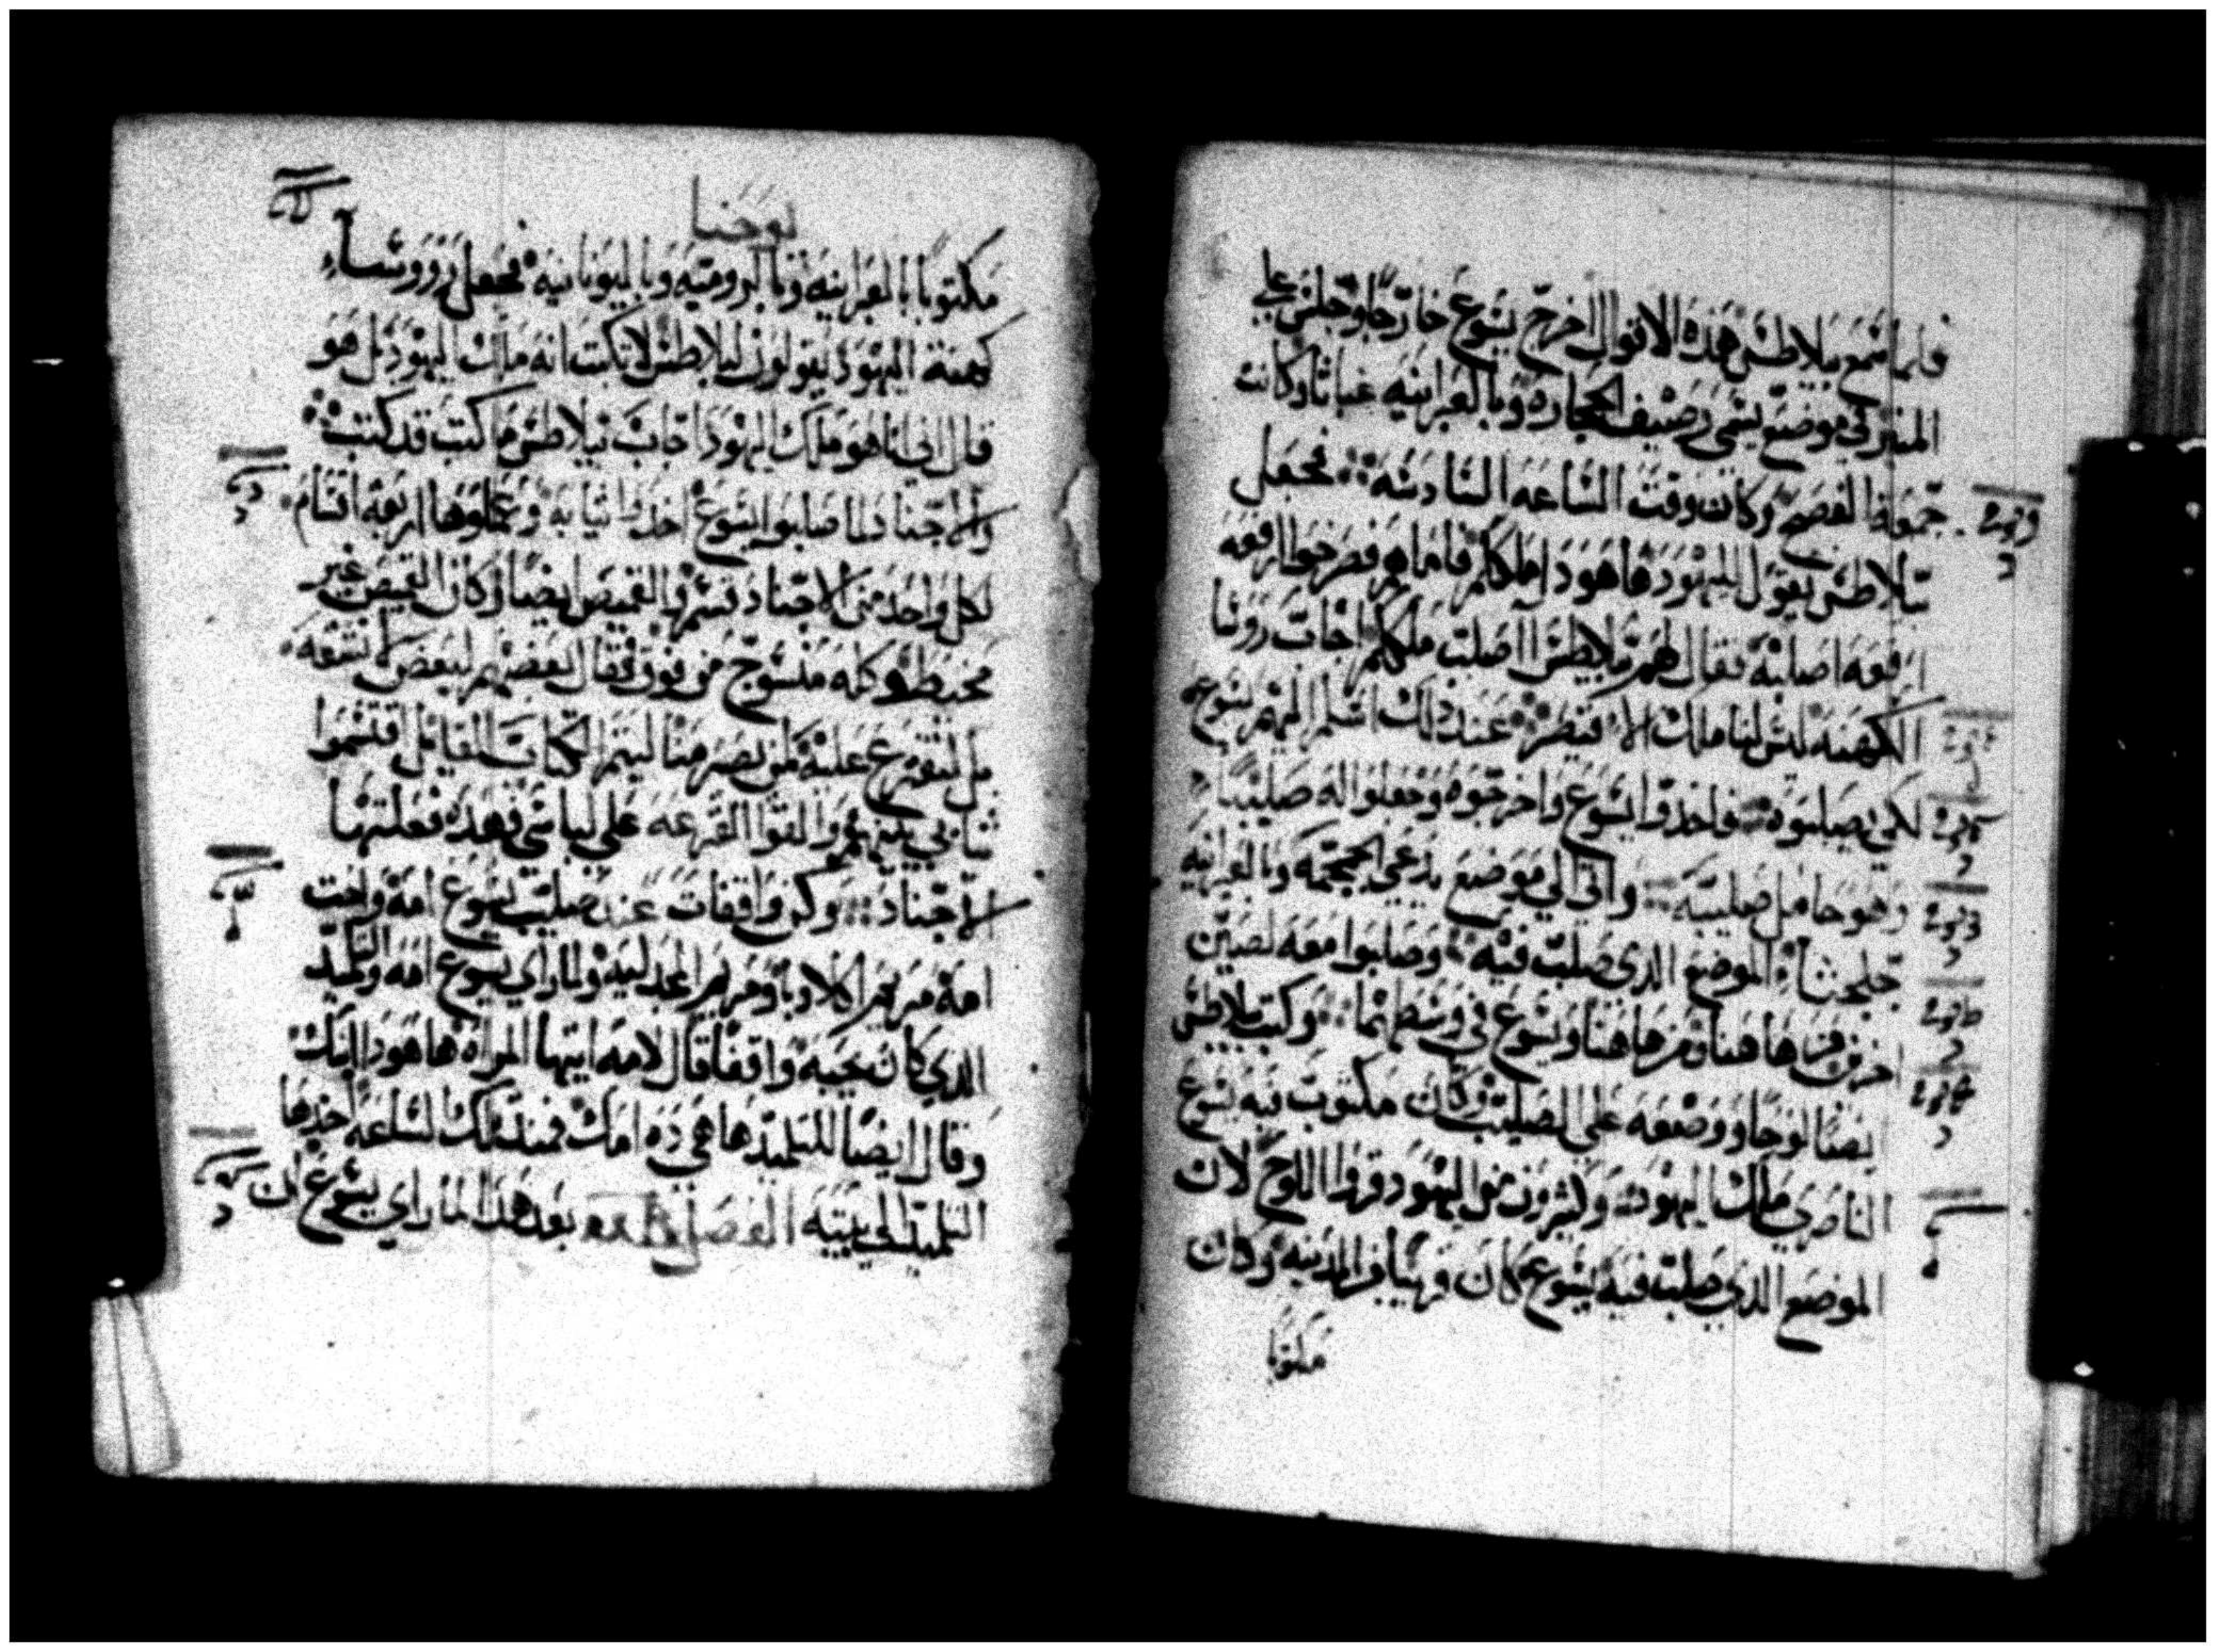 فلما سمع بيلاطس هذه الاقوال اخرج يسوع خارجا وجلس علي
المنبر في موضع يسمي رصيف الحجاره وبالعبرانيه غباثا وكانت
جمعة الفصح وكان وقت الساعه السادسه فجعل
بيلاطس يقول لليهود هاهودا ملككم فاما هم فصرخوا ارفعه
ارفعه اصلبه فقال لهم بيلاطس ااصلب ملككم اجاب روسا
الكهنه ليس لنا ملك الا قيصر عند ذلك اسلم اليهم يسوع
لكي يصلبوه فاخذوا يسوع واخرجوه وجعلوا له صليبا
وهو حامل صليبه واتي الي موضع يدعي الجمجمه وبالعبرانيه
جلجثا الموضع الدي صلب فيه وصلبوا معه لصين
اخرين من هاهنا ومن هاهنا ويسوع في وسطهما وكتب بيلاطس
ايضا لوحا ووضعه علي الصليب وكان مكتوب فيه يسوع
الناصري ملك اليهود وكثيرون من اليهود قروا اللوح لان
الموضع الدي صلب فيه يسوع كان قريبا من المدينه وكان
مكتوبا
يوحنا
مكتوبا بالعبرانيه وبالروميه وباليونانيه فجعل رووساء
كهنة اليهود يقولون لبيلاطس لا تكتب انه ملك اليهود بل هو
قال اني انا هو ملك اليهود اجاب بيلاطس ما كتبت قد كتبت
والاجناد لما صلبوا يسوع اخدوا ثيابه وعملوها اربعة اقسام
لكل واحد من الاجناد قسم والقميص ايضا وكان القميص غير
مخيط وكله منسوج من فوق فقال بعضهم لبعض لا نشقه
بل نقترع عليه لمن يصير منا ليتم الكتاب القايل اقتسموا
ثيابي بينهم والقوا القرعه علي لباسي فهذه فعلتها
الاجناد وكن واقفات عند صليب يسوع امه واخت
امه مريم اكلاوبا ومريم المجدليه ولما راي يسوع امه والتلميد
الدي كان يحبه واقفا قال لامه ايتها المراه هاهودا ابنك
وقال ايضا للتلميد ها هي ده امك فمند تلك الساعه اخدها
التلميد الي بيته الفصل بعد هدا لما راي يسوع ان